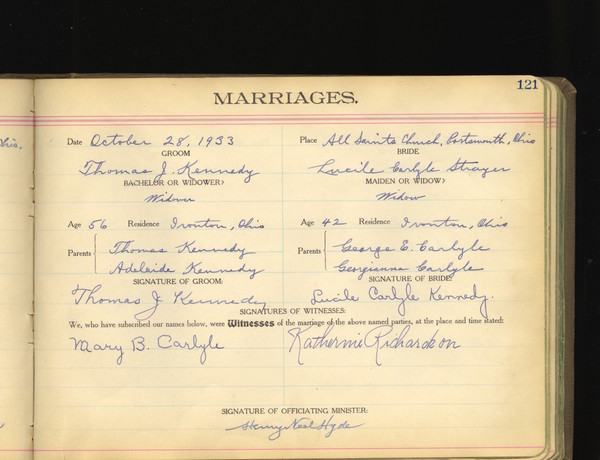 121
MARRIAGES.
Ohio.
Date October 28, 1933 Place All Saints Church, Portsmouth, Ohio
GROOM BRIDE
Thomas J. Kennedy Lucile Carlyle Strayer
BACHELOR OR WIDOWER? MAIDEN OR WIDOW?
Widower Widow
Age 56 Residence Ironton, Ohio Age 42 Residence Ironton, Ohio
Parents Thomas Kennedy Parents George E. Carlyle
Adelaide Kennedy Georgianna Carlyle
SIGNATURE OF GROOM: SIGNATURE OF BRIDE:
Thomas J Kennedy Lucile Carlyle Kennedy.
SIGNATURES OF WITNESSES:
We, who have subscribed our names below, were Witnesses of the marriage of the above named parties, at the place and time stated:
Mary B. Carlyle Katherine Richardson
SIGNATURE OF OFFICIATING MINISTER:
Henry Neal Hyde